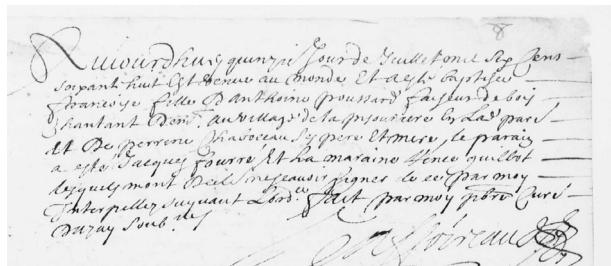 8
Aujourdhuy quinzie Jour de Juillet mil Sep Cens
soixante huit Est venue au monde Et a este baptisee
francoise fille D'anthoine proussard faiseur de bois
chantant Dem^t. au village de la en La d. paroi
Et De perrine chaboceau Ses pere Et mere, le parain
a esté Jacques fourré, Et La maraine Renee quillot
lesquels mont declaré ne scavoir signer le ce par moy
Interpellez suyvant Lord^ce fait par moy p^bre Curé
Soub^ne